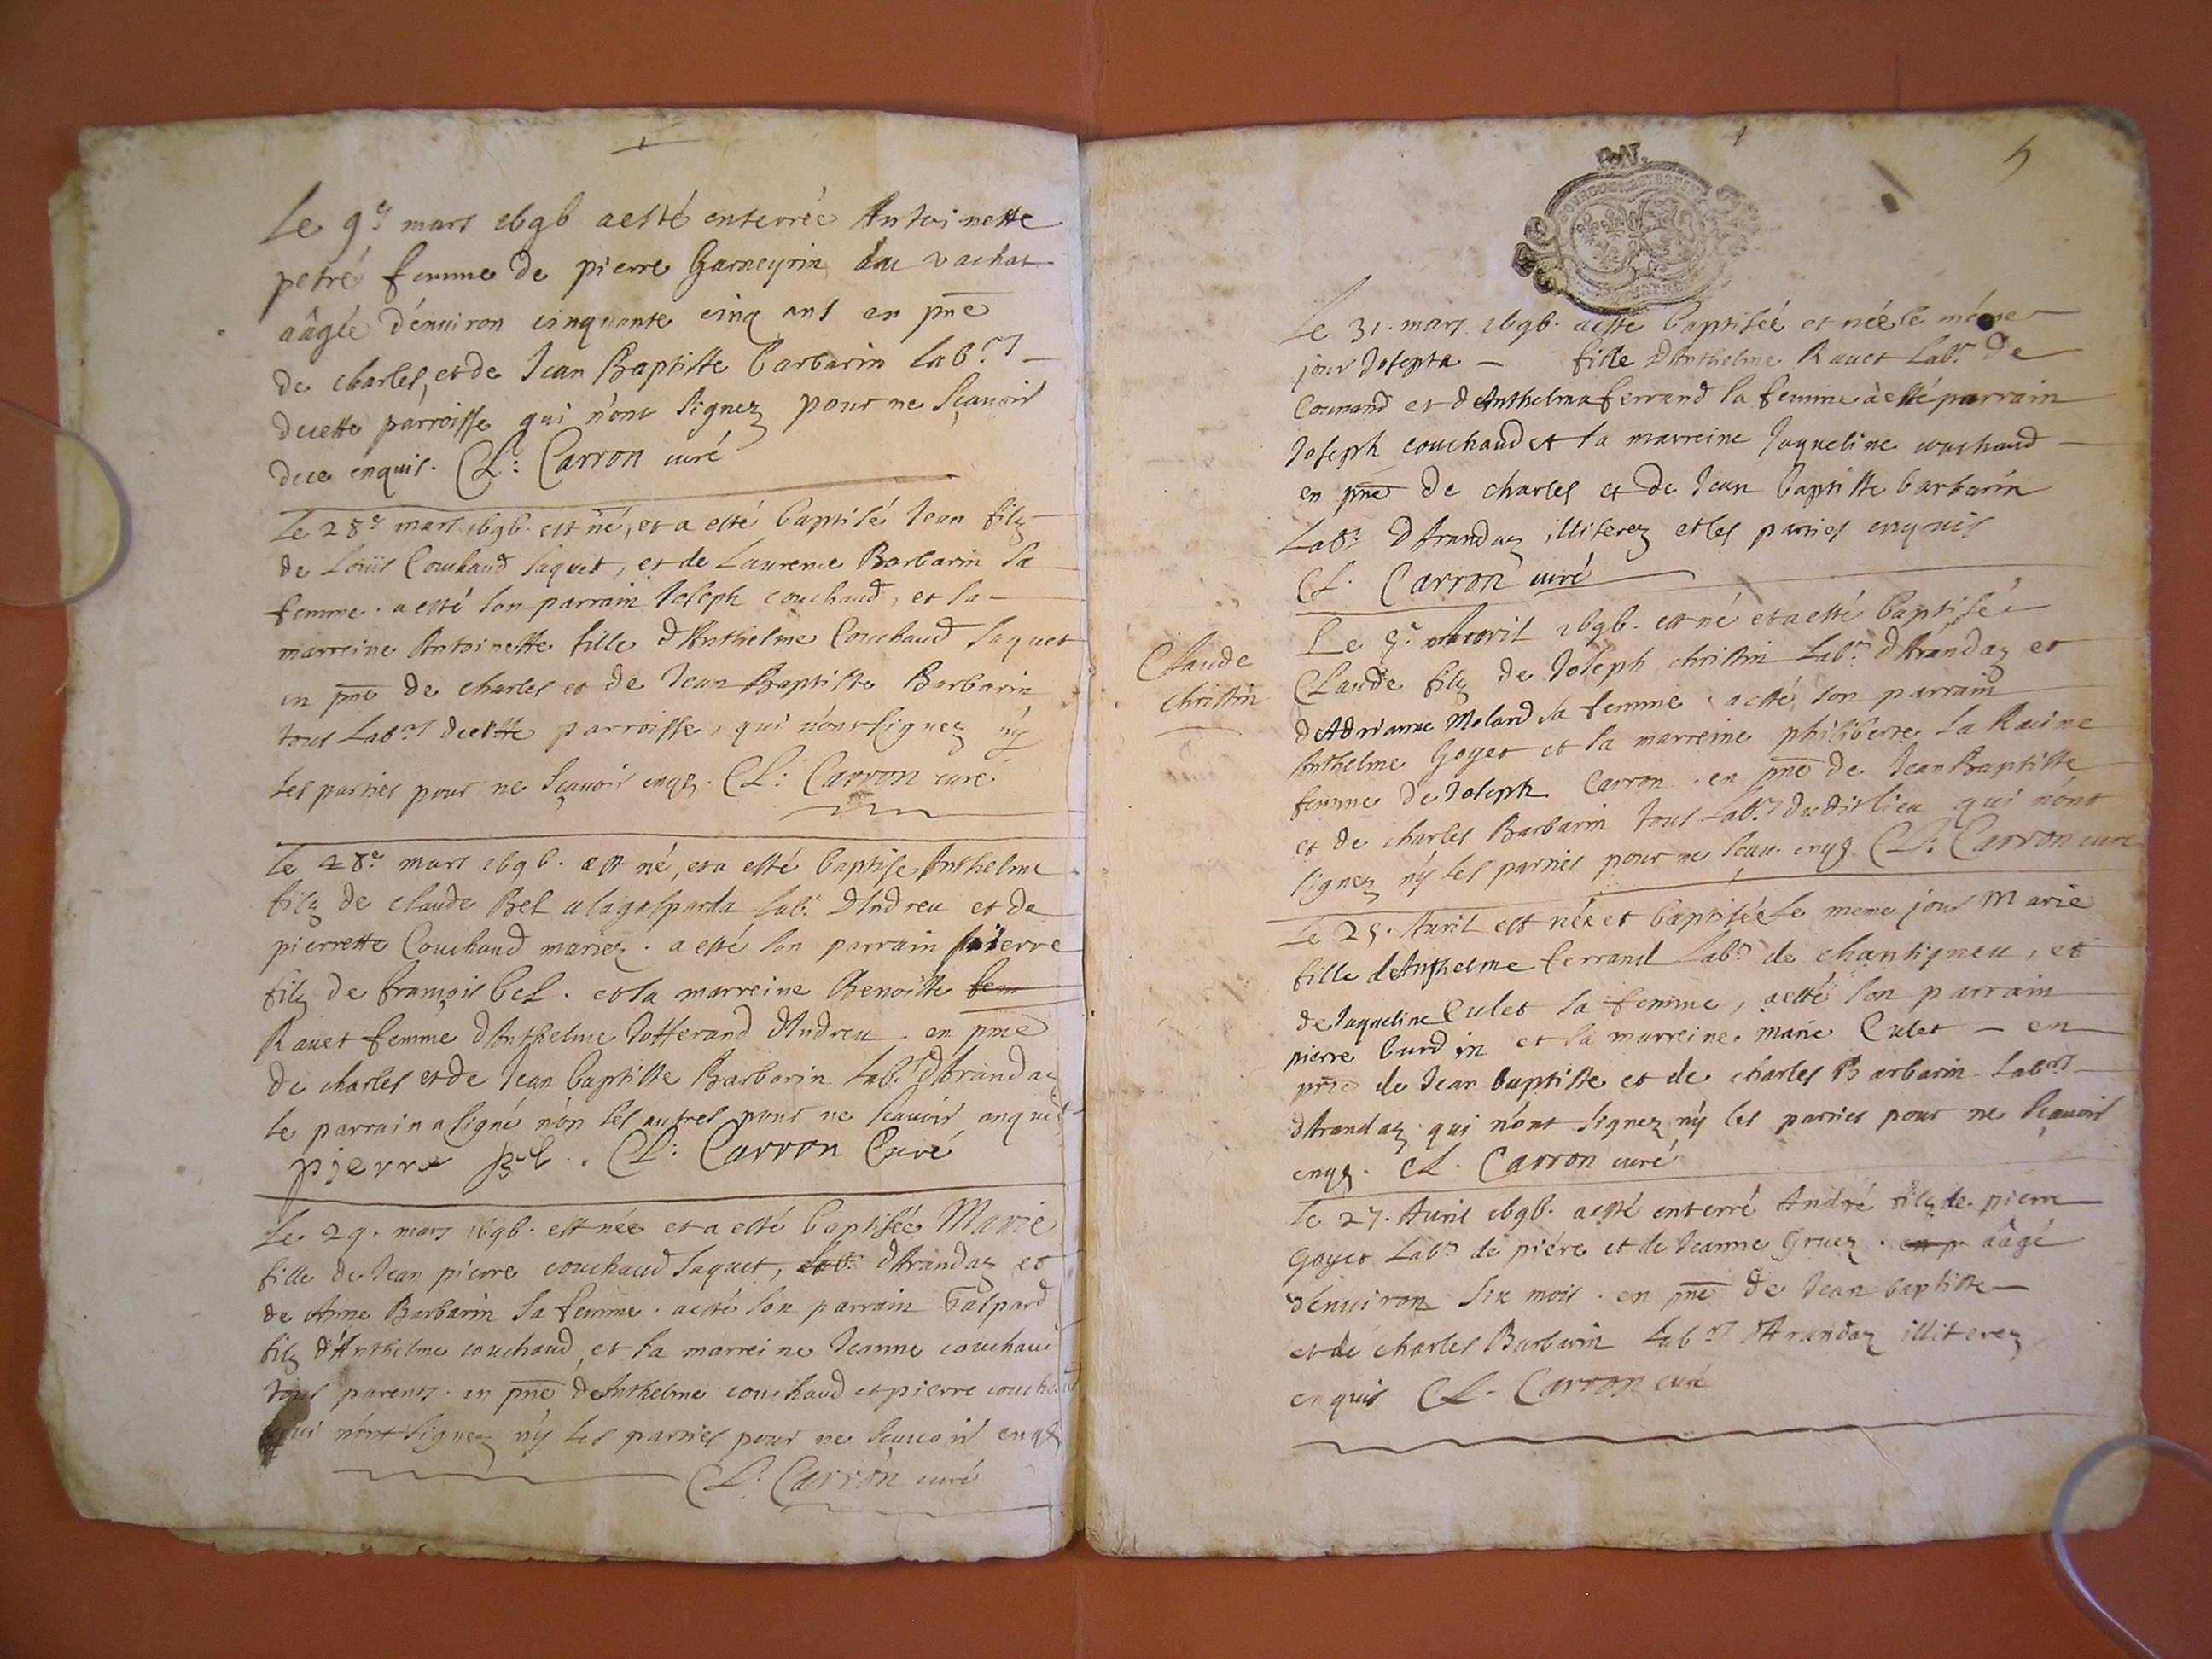 Le 9.e mars 1696 a esté enterrée Antoinette
petré femme de pierre Garneyrin du vachat
aâgée d'enuiron cinquante cinq ans en pn̄e
de charles, et de Jean Baptiste barbarin lab.rs
decette parroisse qui n'ont signez pour ne sçauoir
dece enquis. Cl: Carron curé
Le 28.e mars 1696. est né, et a esté baptisé Jean filz
de Loüis Couchaud Jaquet, et de Laurence Barbarin sa
femme. a esté son parrain Joseph couchaud, et la
marreine Antoinette fille d'Anthelme Couchaud Jaquet
en pn̄e de charles et de Jean Baptiste Barbarin
tous Lab.rs decette parroisse, qui n'ont signez ny
les parties pour ne sçauoir enqs. Cl: Carron curé
Le 28.e mars 1696. est né, et a esté baptise Anthelme
filz de claude Bel alagasparda lab.r d'Andreu et de
pierrette Couchaud mariez. a esté son parrain pierre
filz de françois bel. et la marreine Benoiste fem
Rauet femme d'Anthelme Jofferand d'Andreu. en pn̄e
de charles et de Jean baptiste Barbarin Lab.rs d'Arandaz
le parrain a signé nòn les autres pour ne scauoir enquis
pierre bel. Cl: Carron Curé
Le 29. mars 1696. est née et a esté baptisée Marie
fille de Jean pierre couchaud Jaquet, Lab. d'Arandaz et
de Anne Barbarin sa femme. a esté son parrain Gaspard
filz d'Anthelme couchaud, et la marreine Jeanne couchaud
tous parents. en pn̄e de Anthelme couchaud et pierre couchaud
qui n'ont signez ny les parties pour ne scauoir enqs
Cl: Carron curé
5
Le 31. mars 1696. a esté baptisée et née le méme
jour Josepta — fille d'Anthelme Rauet Lab.r de
Counand et de Anthelma ferrand sa femme à esté parrain
Joseph couchaud et la marreine Jaqueline couchaud
en pn̄e de charles et de Jean baptiste barbarin
Lab.rs d'Arandaz illiterez et les parties enquis
Cl. Carron curé
Claude
christin
Le Auril 1696. est né et a esté baptisé
Claude filz de Joseph christin Lab.r d'Arandaz et
de Adrianne Molard sa femme a esté son parrain
Anthelme Goyet et la marreine philiberte La Racine
femme de Joseph Carron. en pn̄e de Jean Baptiste
et de charles Barbarin tous Lab.rs dudit lieu qui n'ont
signez ny les parties pour ne scau. enqs Cl: Carron curé
Le 25. Auril est née et baptisée le meme jour Marie
fille de Anthelme ferrand Lab.r de chantigneu, et
de Jaqueline Culet sa femme, a esté son parrain
pierre burdin et la marreine marie Culet — en
pn̄e de Jean baptiste et de charles Barbarin Lab.rs
d'Arandaz qui n'ont signez ny les parties pour ne sçauoir
enqs. Cl. Carron curé
Le 27. Auril 1696. a esté enterré André filz de pierre
Goyet Lab.r de piére et de Jeanne Gruez. en p aâgé
d'enuiron six mois. en pn̄e de Jean baptiste
et de charles Barbarin Lab.rs d'Arandaz illiterez
enquis Cl. Carron curé